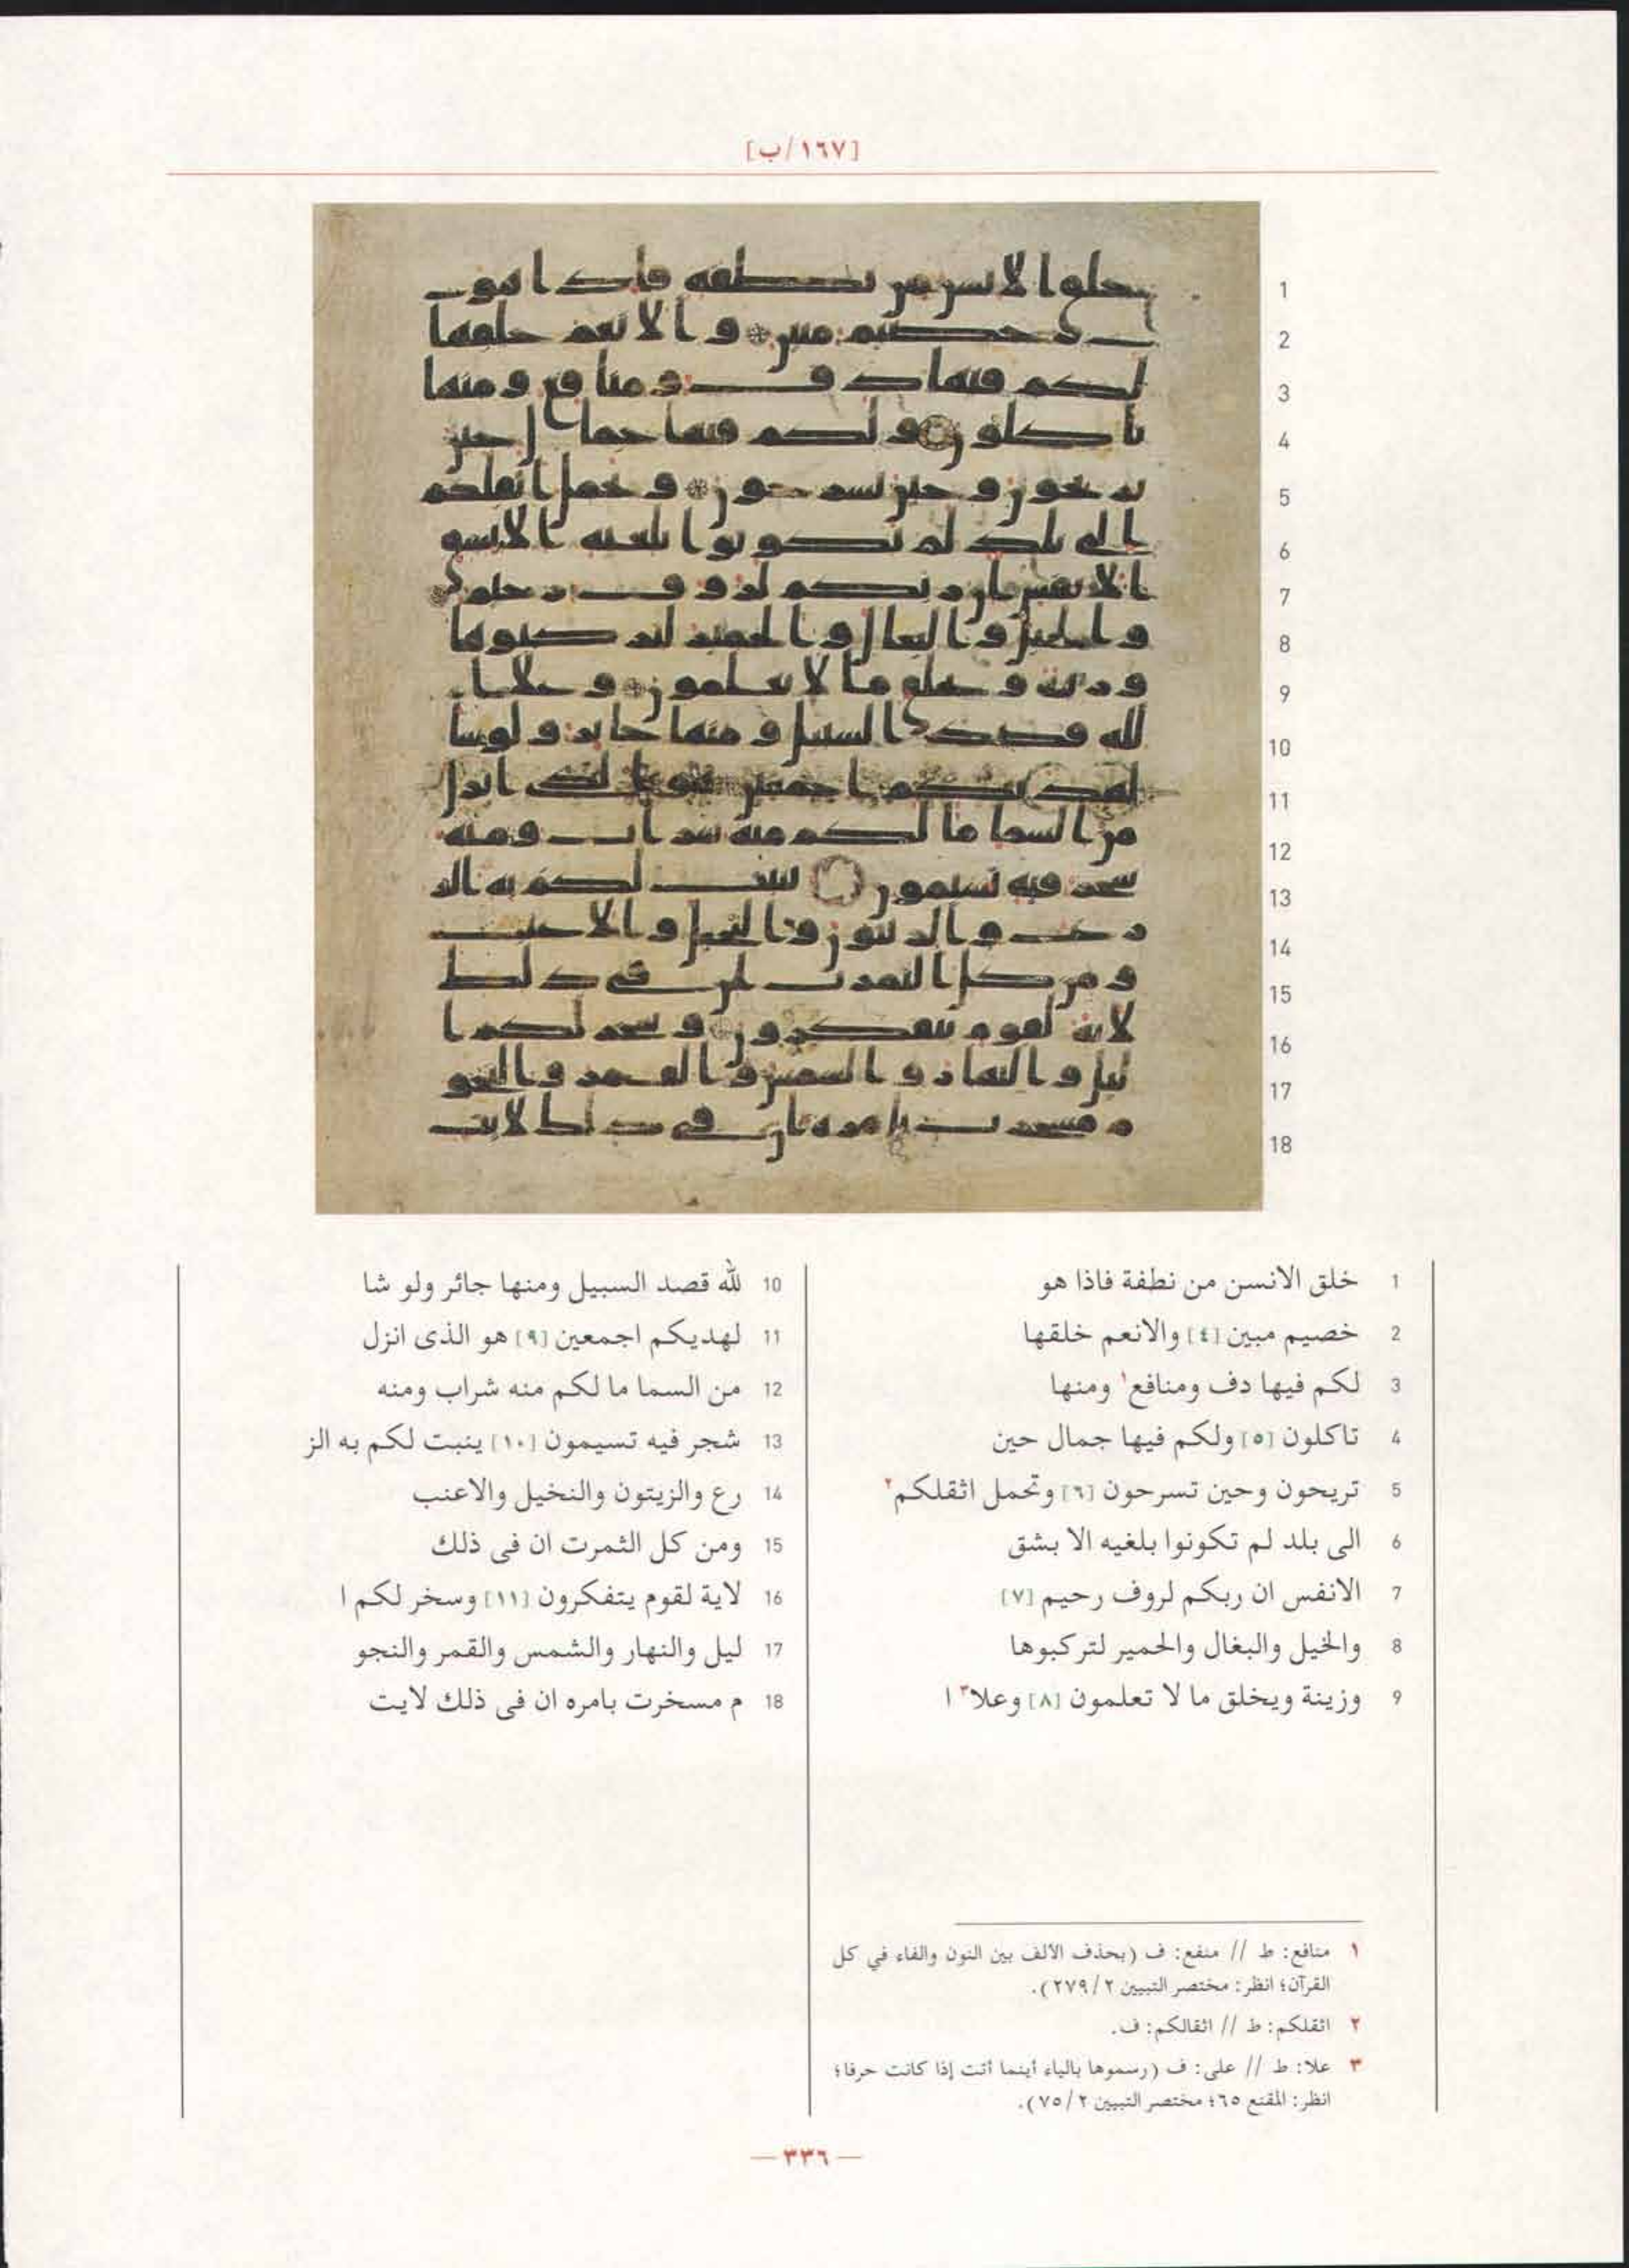 [١٦٧/ب]
1 خلق الانسن من نطفة فاذا هو
2 خصيم مبين [٤] والانعم خلقها
3 لكم فيها دف ومنافع١ ومنها
4 تاكلون [٥] ولكم فيها جمال حين
5 تريحون وحين تسرحون [٦] وتحمل اثقلكم٢
6 الى بلد لم تكونوا بلغيه الا بشق
7 الانفس ان ربكم لروف رحيم [٧]
8 والخيل والبغال والحمير لتركبوها
9 وزينة ويخلق ما لا تعلمون [٨] وعلا٣ ا
10 لله قصد السبيل ومنها جائر ولو شا
11 لهديكم اجمعين [٩] هو الذى انزل
12 من السما ما لكم منه شراب ومنه
13 شجر فيه تسيمون [١٠] ينبت لكم به الز
14 رع والزيتون والنخيل والاعنب
15 ومن كل الثمرت ان فى ذلك
16 لاية لقوم يتفكرون [١١] وسخر لكم ا
17 ليل والنهار والشمس والقمر والنجو
18 م مسخرت بامره ان فى ذلك لايت
١ منافع: ط // منفع: ف (بحذف الألف بين النون والفاء في كل
القرآن؛ انظر: مختصر التبيين ٢/٢٧٩).
٢ اثقلكم: ط // اثقالكم: ف.
٣ علا: ط // على: ف (رسموها بالياء أينما أتت إذا كانت حرفا؛
انظر: المقنع ٦٥؛ مختصر التبيين ٢/٧٥).
— ٣٣٦ —